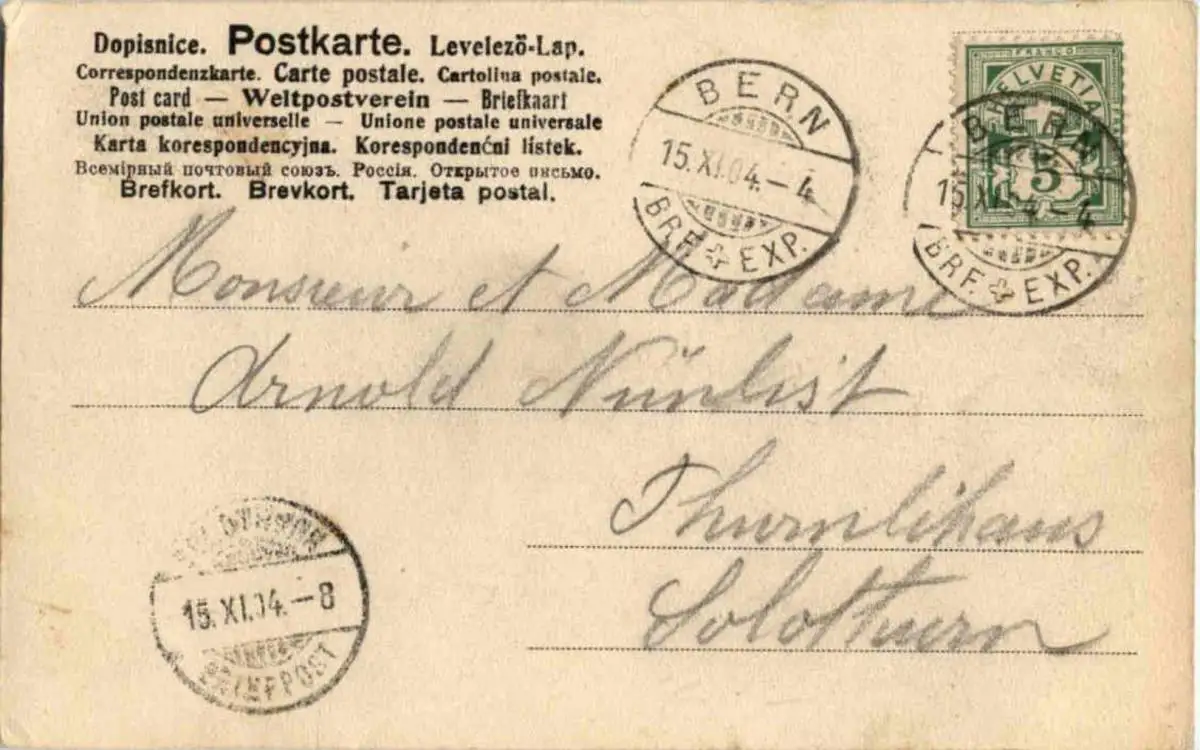 Dopisnice. Postkarte. Levelező-Lap.
Correspondenzkarte. Carte postale. Cartolina postale.
Post card — Weltpostverein — Briefkaart
Union postale universelle — Unione postale universale
Karta korespondencyjna. Korespondenční listek.
Всемірный почтовый союзъ. Россія. Открытое письмо.
Brefkort. Brevkort. Tarjeta postal.
BERN
15.XI.04.–4
BRF. EXP.
FRANCO
HELVETIA
5
BERN
15.XI.04.–4
BRF. EXP.
Monsieur et Madame
Arnold Nünlist
Thurnlihaus
Solothurn
SOLOTHURN
15.XI.04.–8
BRIEFPOST